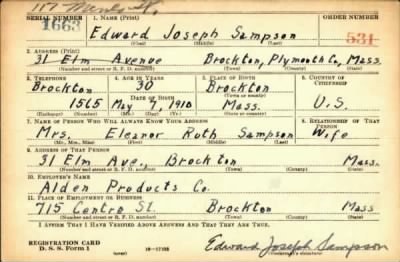 157 Menlo St.
SERIAL NUMBER 1. NAME (Print) ORDER NUMBER
1663 Edward Joseph Sampson 531
(First) (Middle) (Last)
2. ADDRESS (Print)
31 Elm Avenue Brockton, Plymouth Co, Mass.
(Number and street or R. F. D. number) (Town) (County) (State)
3. TELEPHONE 4. AGE IN YEARS 5. PLACE OF BIRTH 6. COUNTRY OF CITIZENSHIP
Brockton 30 Brockton
DATE OF BIRTH (Town or county)
1565 May 7, 1910 Mass. U.S.
(Exchange) (Number) (Mo.) (Day) (Yr.) (State or country)
7. NAME OF PERSON WHO WILL ALWAYS KNOW YOUR ADDRESS 8. RELATIONSHIP OF THAT PERSON
Mrs. Eleanor Ruth Sampson Wife
(Mr., Mrs., Miss) (First) (Middle) (Last)
9. ADDRESS OF THAT PERSON
31 Elm Ave., Brockton Mass.
(Number and street or R. F. D. number) (Town) (County) (State)
10. EMPLOYER'S NAME
Alden Products Co.
11. PLACE OF EMPLOYMENT OR BUSINESS
715 Centre St. Brockton Mass
(Number and street or R. F. D. number) (Town) (County) (State)
I AFFIRM THAT I HAVE VERIFIED ABOVE ANSWERS AND THAT THEY ARE TRUE.
REGISTRATION CARD
D. S. S. Form 1 (over) 16-17105 Edward Joseph Sampson
(Registrant's signature)